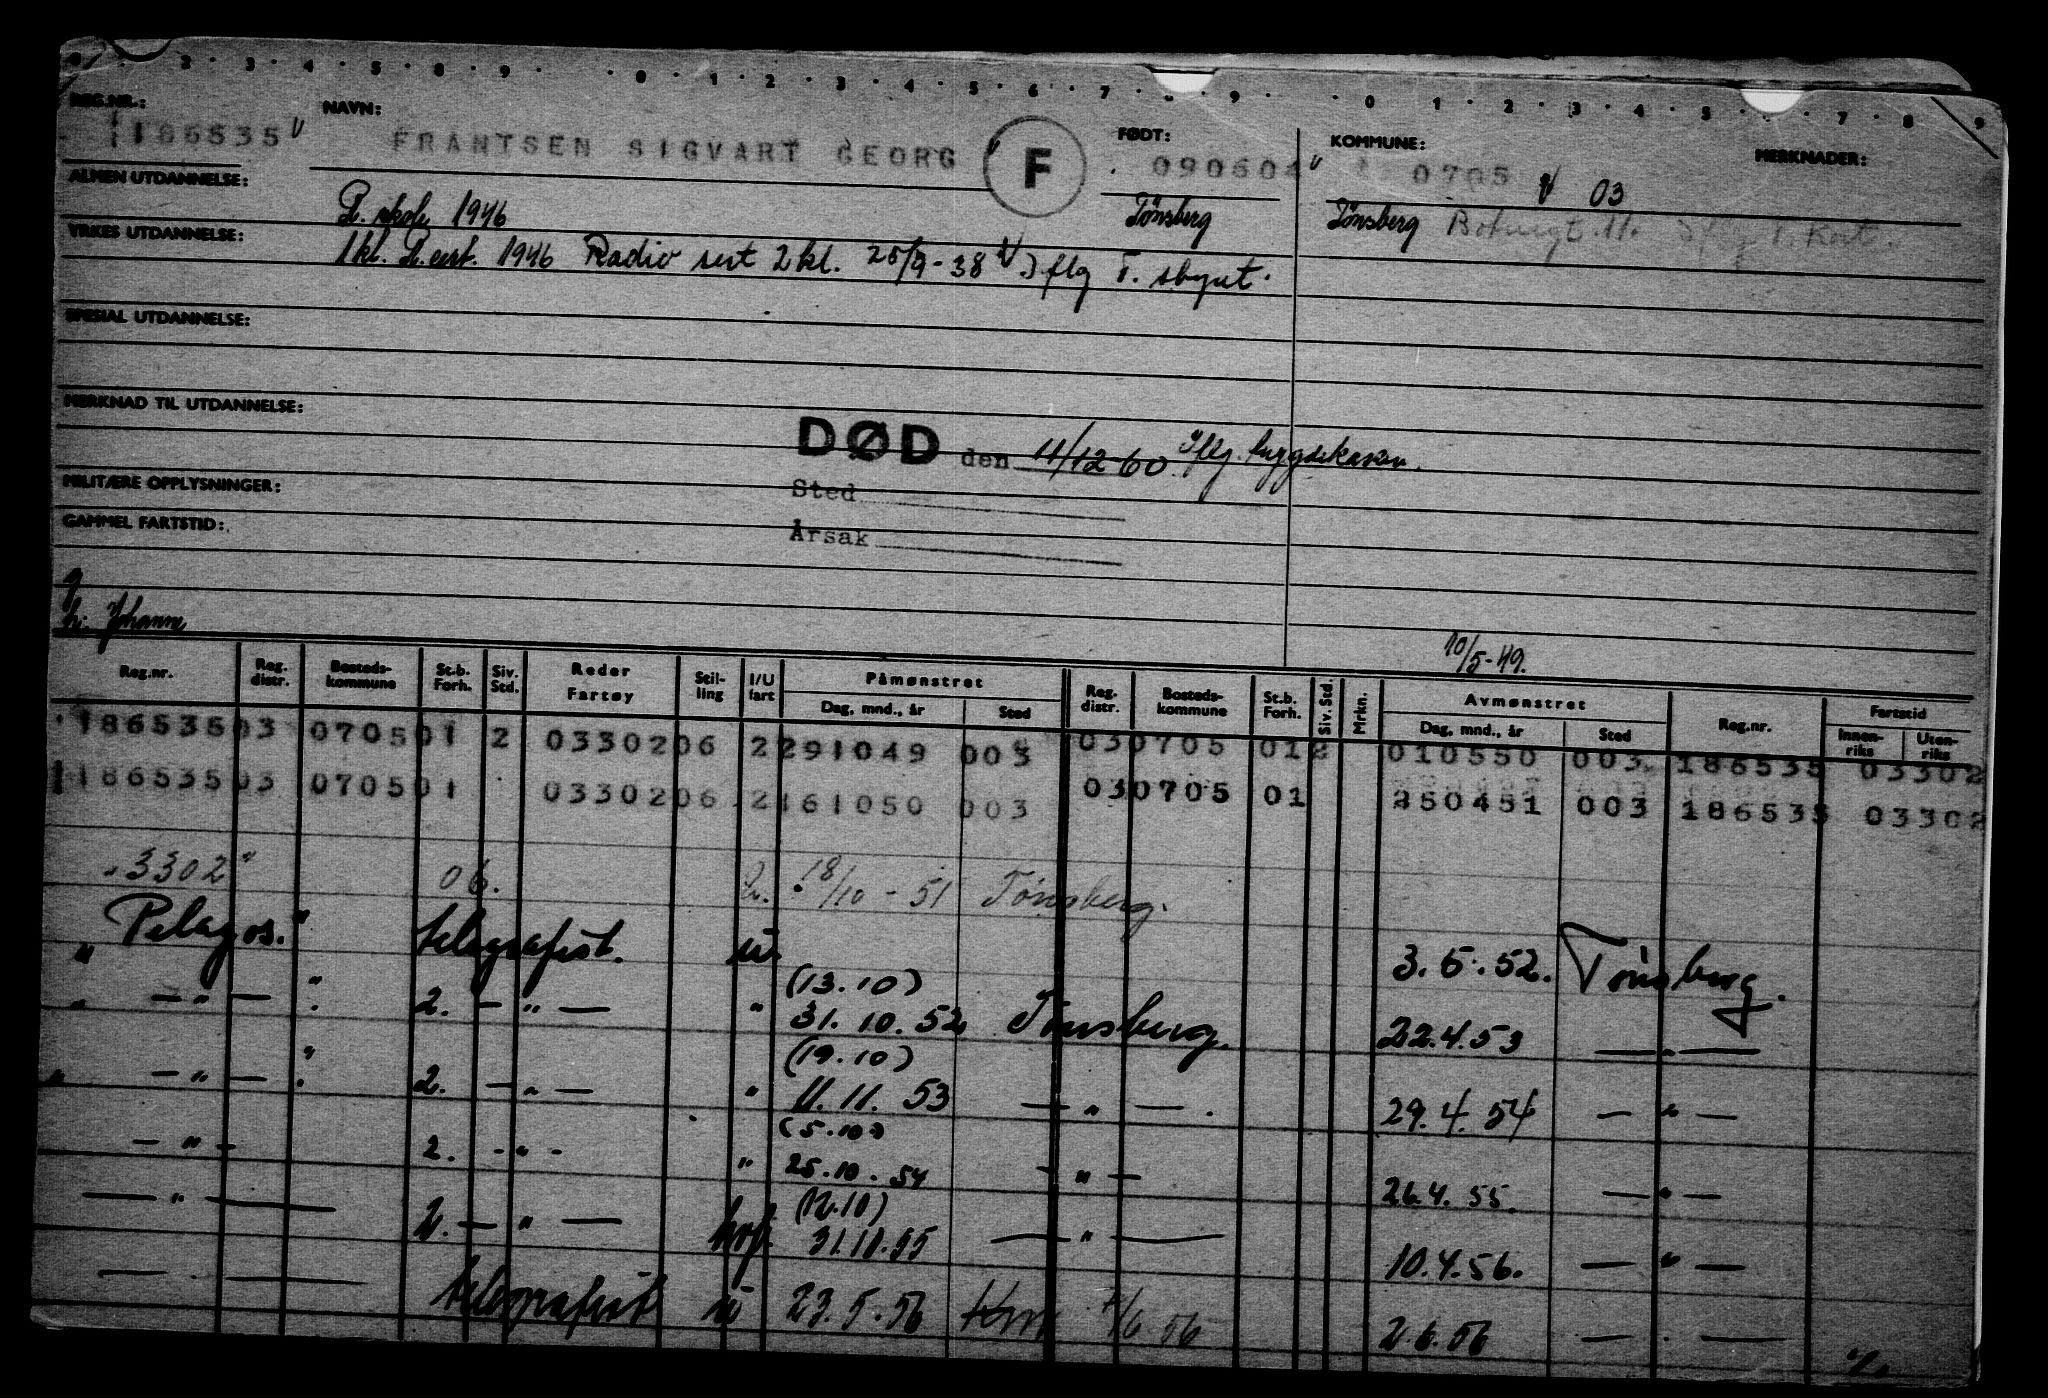 0 · 2 · 3 · 4 · 5 · 8 · 9 · · 0 · 1 · 2 · 3 · 4 · 5 · 6 · 7 · 8 · 9 · · 0 · 1 · 2 · 3 · 4 · 5 · · 7 · 8 · 9
REG.NR.: NAVN: FØDT: KOMMUNE: MERKNADER:
186535 FRANTSEN SIGVART GEORG F 090604 0705 03
ALMEN UTDANNELSE: R. skole 1946 Tönsberg Tönsberg
YRKES UTDANNELSE: 1 kl. R. cert. 1946 Radio sert 2 kl. 25/9-38 Iflg T.
SPESIAL UTDANNELSE:
MERKNAD TIL UTDANNELSE:
DØD den 11/12-60 Iflg. trygdekassen.
MILITÆRE OPPLYSNINGER: Sted
GAMMEL FARTSTID: Årsak
g
h: Johanne
10/5-49.
Reg.nr. Reg. distr. Bosteds-kommune St.b. Forh. Siv. Std. Reder Fartøy Stil-ling I/U fart Påmønstret Dag, mnd., år Sted Reg. distr. Bosteds-kommune St.b. Forh. Siv. Std. Mrkn. Avmønstret Dag, mnd., år Sted Reg.nr. Fartstid Innen-riks Uten-riks
186535 03 0705 01 2 03302 06 2 291049 003 03 0705 01 2 010550 003 186535 03302
186535 03 0705 01 03302 06 2 161050 003 03 0705 01 250451 003 186535 03302
"3302" 06. U. 18/10 - 51 Tönsberg.
"Pelagos." telegrafist. u. 3.5.52. Tönsberg.
" — " — " 2. — " — " (13.10) 31.10.52 Tönsberg. 22.4.53 — " —
" — " — " 2. — " — " (19.10) 11.11.53 — " — . 29.4.54 — " —
— " — 2. - " - " (5.10) 25.10.54 — " — 26.4.55. — " —
— " — 2. — " — hvf. (12.10) 31.10.55 — " — 10.4.56. — " —
— " — telegrafist u 23.5.56 7/6 56 2.6.56 — " —